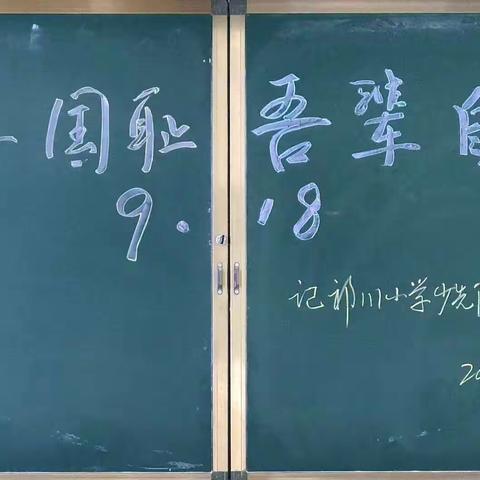 国耻 吾辈自
9.18
记祁川小学少先
20